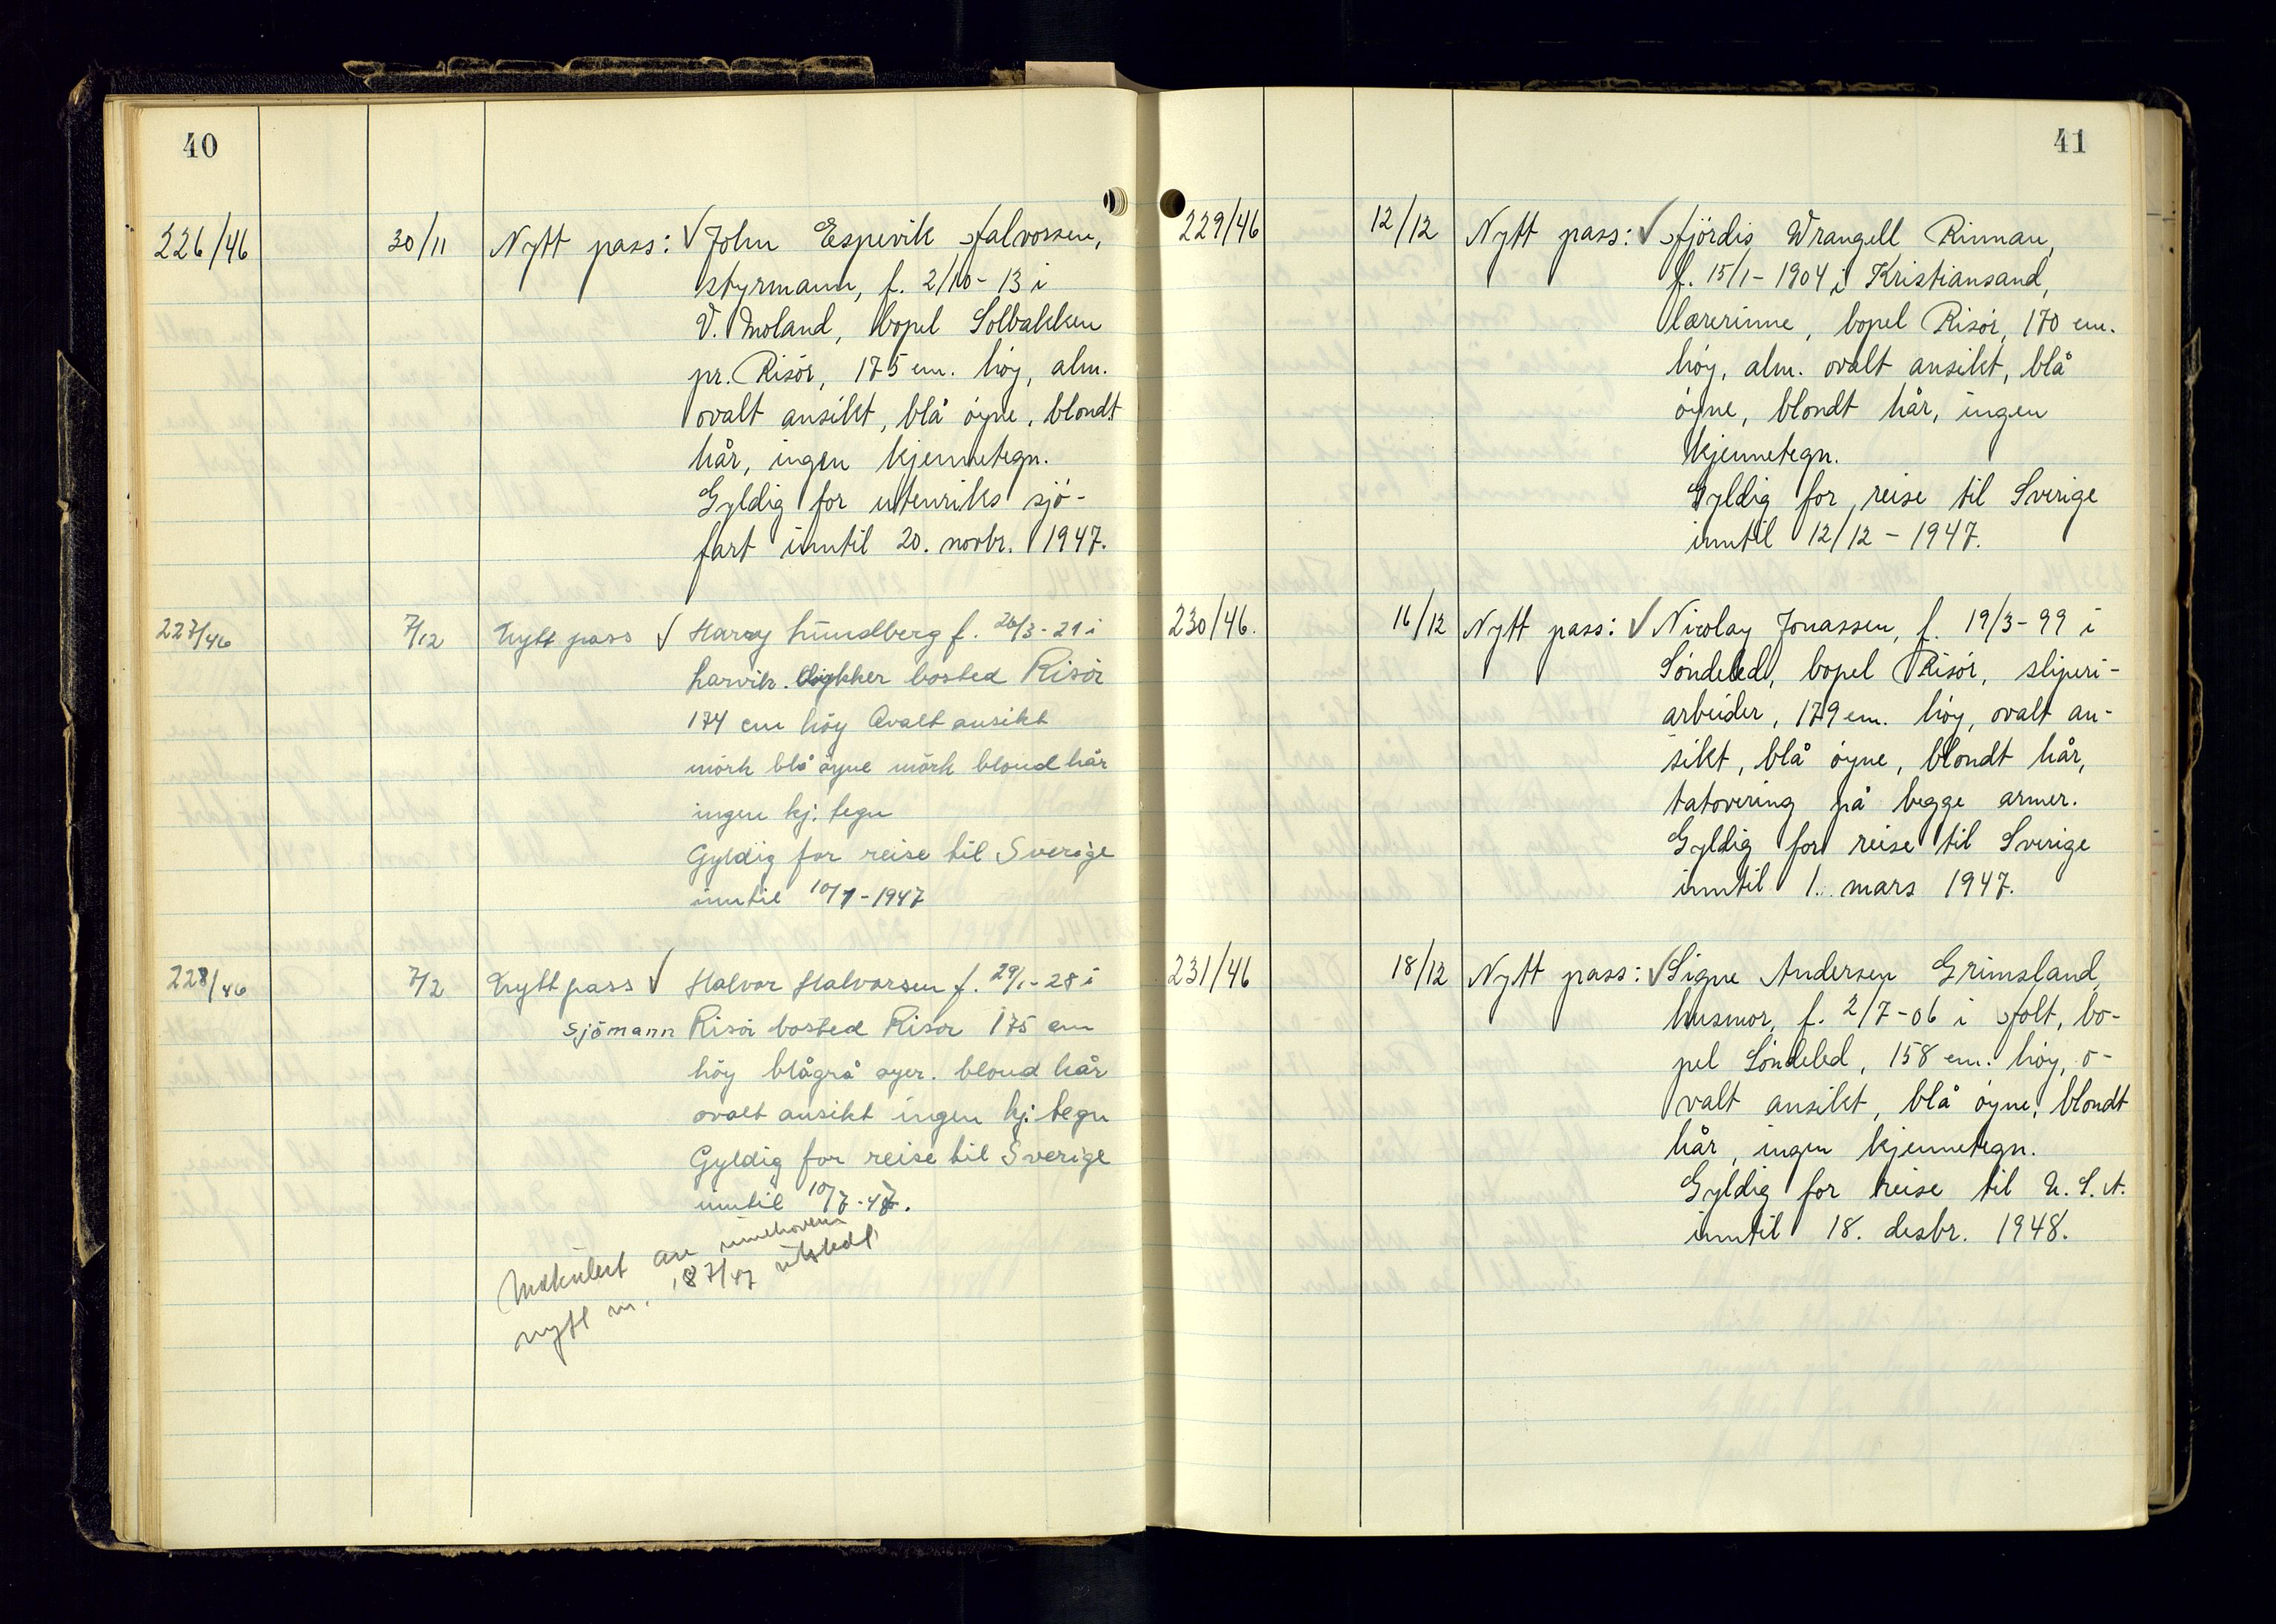 40
226/46 30/11 Nytt pass: √ John Espevik Halvorsen,
styrmann, f. 2/10-13 i
V. Moland, bopel Solbakken
pr. Risör, 175 cm. höy, alm.
ovalt ansikt, blå öyne, blondt
hår, ingen kjennetegn.
Gyldig for utenriks sjö-
fart inntil 20. novbr. 1947.
227/46 7/12 Nytt pass √ Harry Lundberg f. 26/3-21 i
Narvik. bosted Risör
174 cm höy Ovalt ansikt
mörk blå öyne mörk blond hår
ingen kj: tegn
Gyldig for reise til Sverige
inntil 10/1-1947
228/46 7/12 Nytt pass √ Halvor Halvorsen f. 29/1-28 i
sjömann Risör bosted Risör 175 cm
höy blågrå öyer. blond hår
ovalt ansikt ingen kj: tegn
Gyldig for reise til Sverige
inntil 10/7-47.
Makulert av innehaveren
nytt nr. 187/47 utstedt
41
229/46 12/12 Nytt pass: √ Hjördis Wrangell Rinnan,
f. 15/1-1904 i Kristiansand,
lærerinne, bopel Risör, 170 cm.
höy, alm. ovalt ansikt, blå
öyne, blondt hår, ingen
kjennetegn.
Gyldig for reise til Sverige
inntil 12/12-1947.
230/46. 16/12 Nytt pass: √ Nicolay Jonassen, f. 19/3-99 i
Söndeled, bopel Risör, sliperi-
arbeider, 179 cm. höy, ovalt an-
sikt, blå öyne, blondt hår,
tatovering på begge armer.
Gyldig for reise til Sverige
inntil 1. mars 1947.
231/46 18/12 Nytt pass: √ Signe Andersen Grimsland,
husmor, f. 2/7-06 i Holt, bo-
pel Söndeled, 158 cm. höy, o-
valt ansikt, blå öyne, blondt
hår, ingen kjennetegn.
Gyldig for reise til U.S.A.
inntil 18. desbr. 1948.